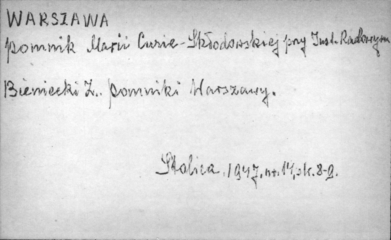 WARSZAWA
pomnik Marii Curie-Skłodowskiej przy Inst. Radowym
Bieniecki Z. Pomniki Warszawy.
Stolica, 1947, nr. 14, sk. 8-9.